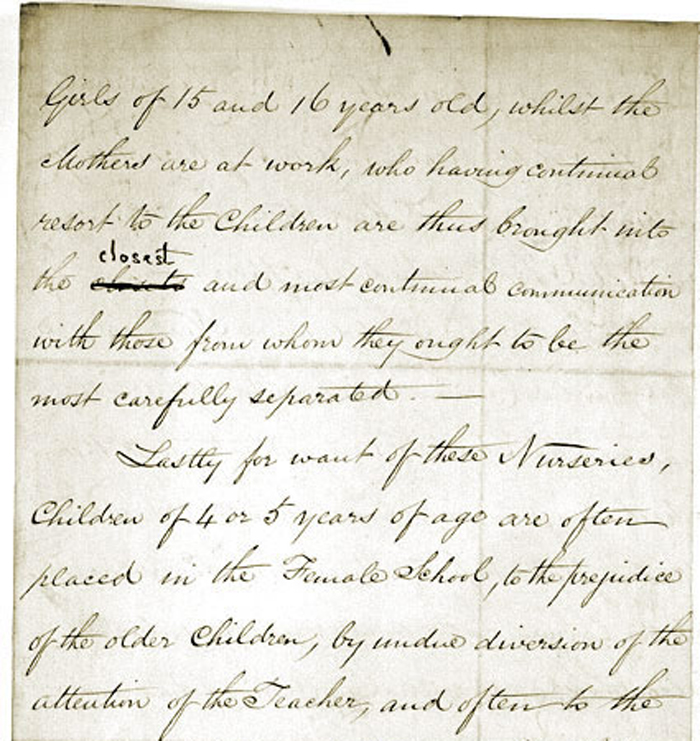 Girls of 15 and 16 years old, whilst the
Mothers are at work, who having continual
resort to the Children are thus brought into
closest
the closets and most continual communication
with those from whom they ought to be the
most carefully separated. —
Lastly for want of these Nurseries,
Children of 4 or 5 years of age are often
placed in the Female School, to the prejudice
of the older Children, by undue diversion of the
attention of the Teacher, and often to the